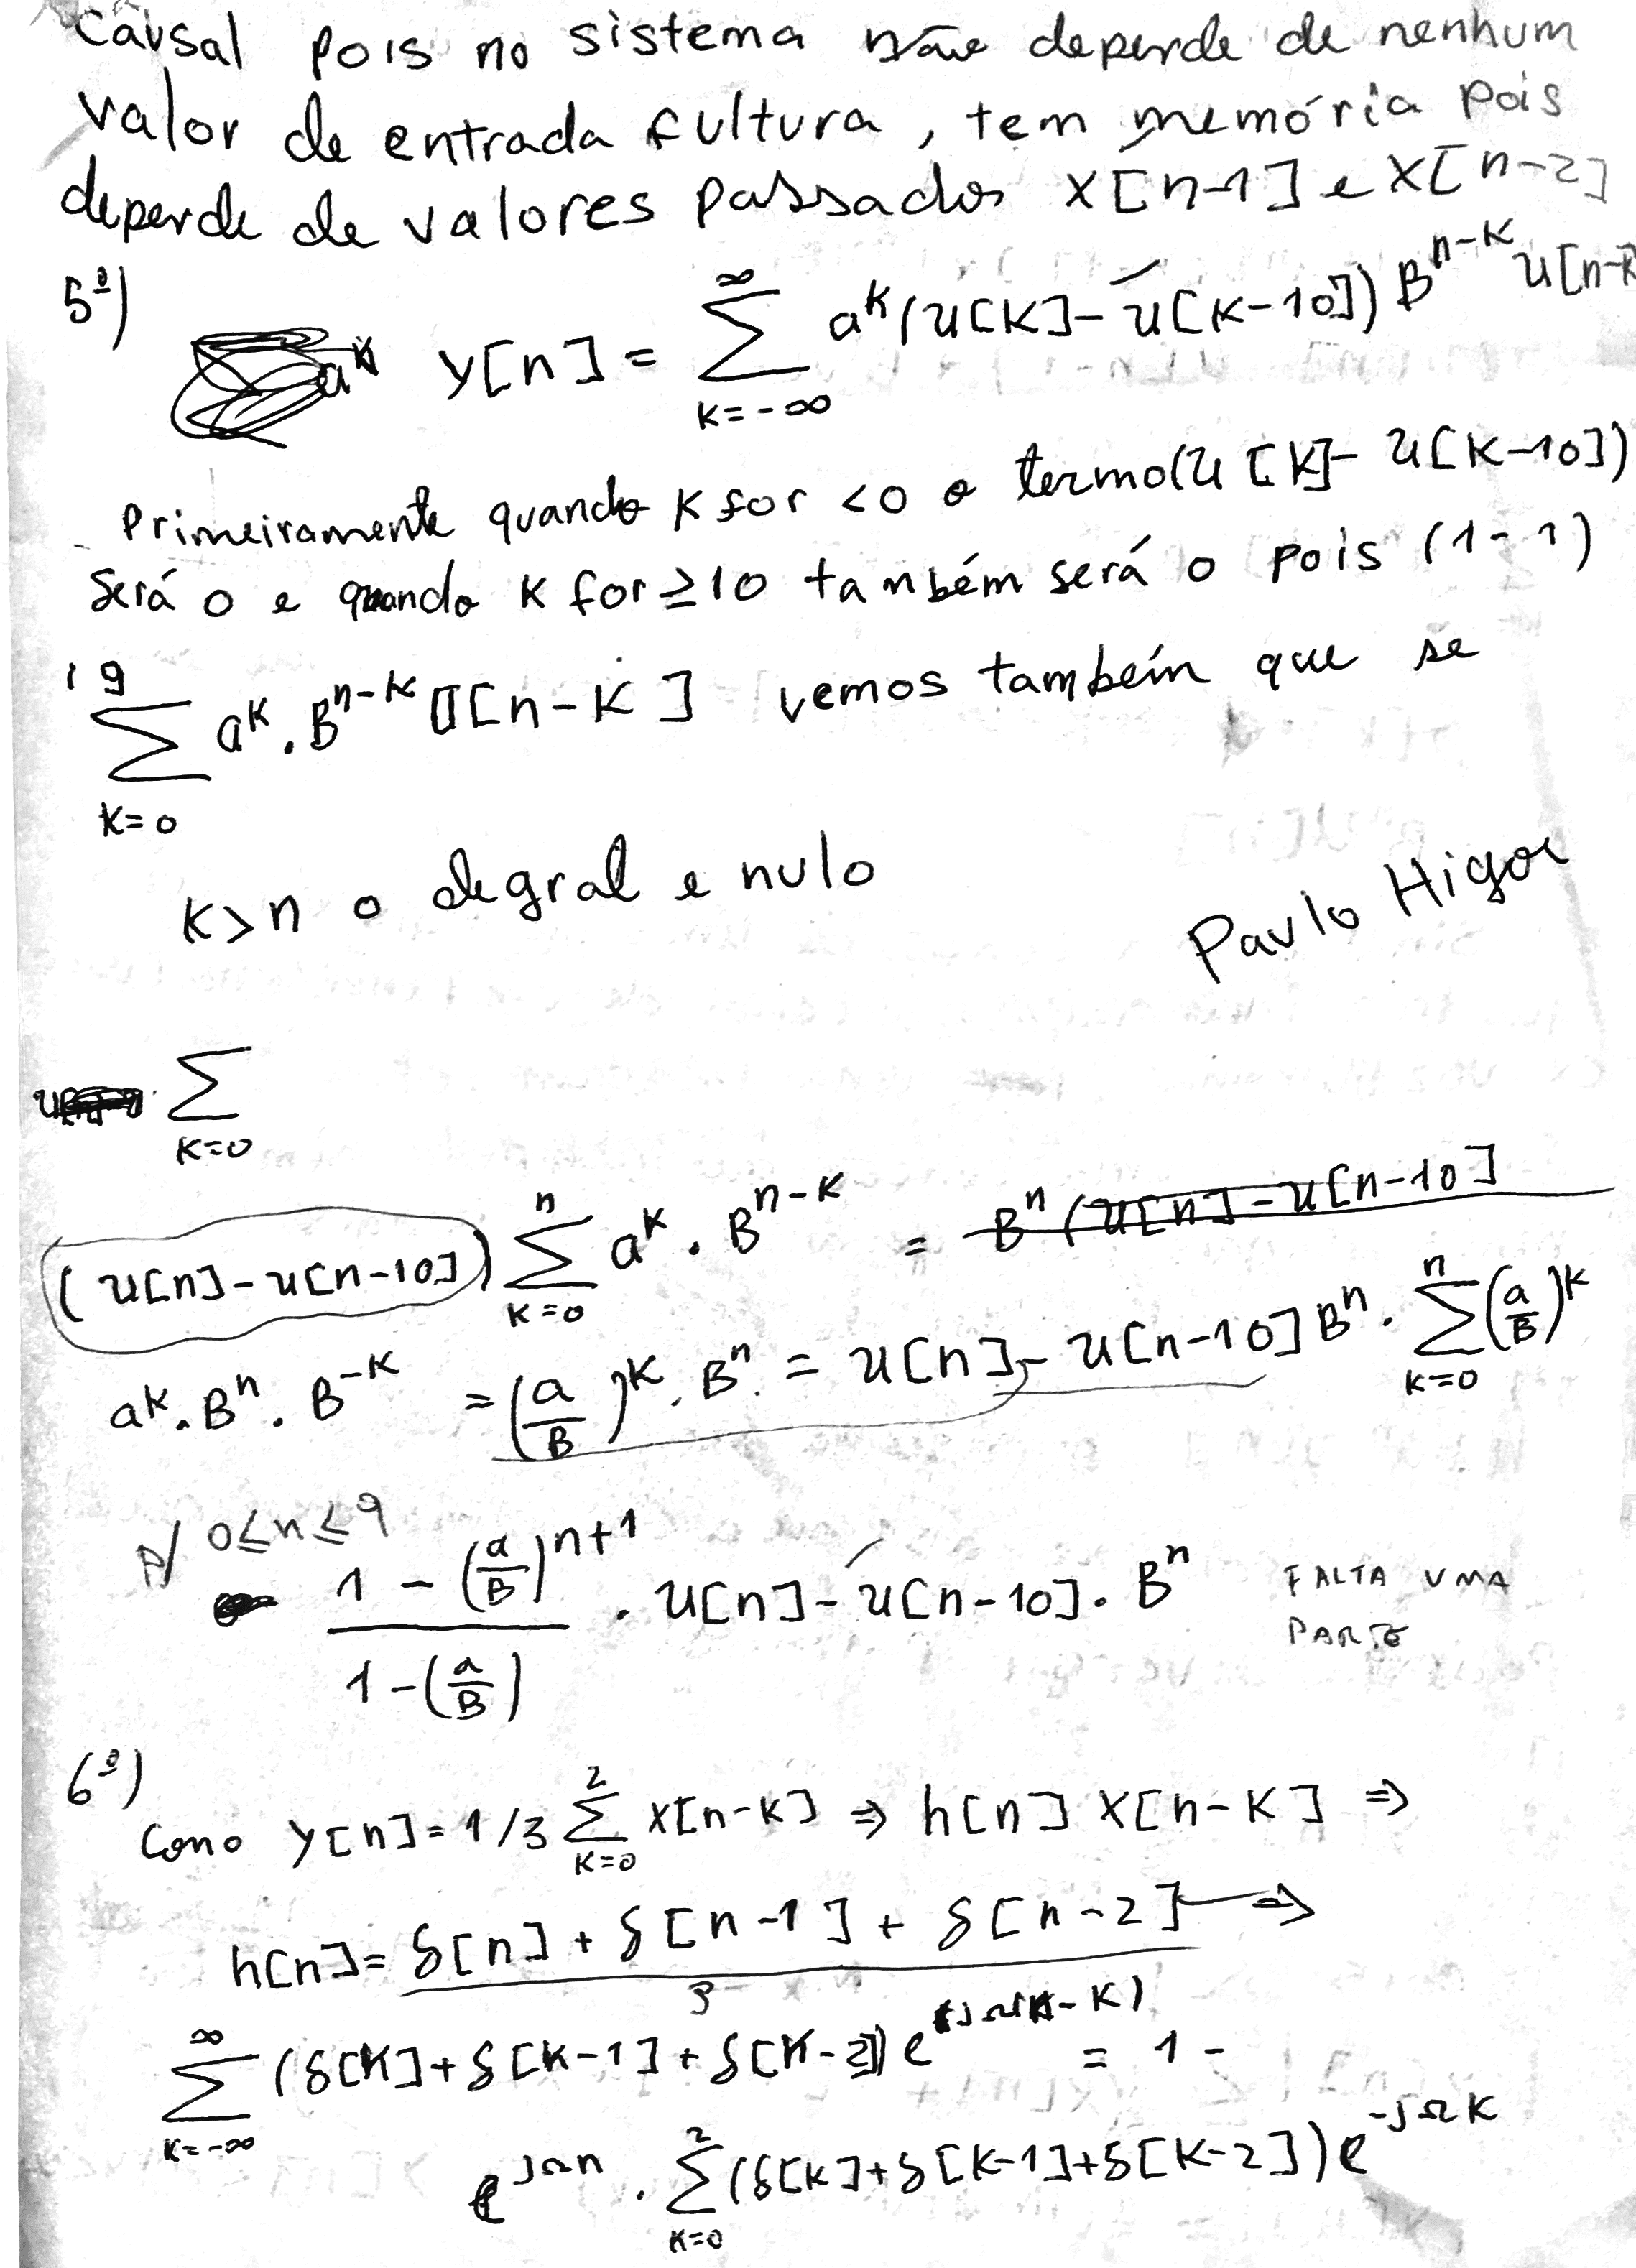 Causal pois no sistema não depende de nenhum
valor de entrada fultura, tem memória pois
depende de valores passados x[n-1] e x[n-2]
5ª) y[n] = ∑_{k=-∞}^{∞} a^k (u[k] - u[k-10]) B^{n-k} u[n-k
a^k
Primeiramente quando k for <0 o termo (u[k] - u[k-10])
será 0 e quando k for ≥10 também será 0 pois (1-1)
∑_{k=0}^{9} a^k . B^{n-k} u[n-k] vemos também que se
k>n o degral e nulo
Paulo Higor
∑_{k=0}
(u[n] - u[n-10]) ∑_{k=0}^{n} a^k . B^{n-k} = B^n (u[n] - u[n-10]
a^k . B^n . B^{-k} = (a/B)^k . B^n . = u[n] - u[n-10] B^n . ∑_{k=0}^{n} (a/B)^k
P/ 0≤n≤9
\frac{1 - (a/B)^{n+1}}{1 - (a/B)} . u[n] - u[n-10] . B^n FALTA UMA
PARTE
6ª)
Como y[n] = 1/3 ∑_{k=0}^{2} x[n-k] ⇒ h[n] x[n-k] ⇒
h[n] = \frac{δ[n] + δ[n-1] + δ[n-2]}{3} →
∑_{k=-∞}^{∞} (δ[k] + δ[k-1] + δ[k-2]) e^{jΩ(n-k)} = 1 -
e^{jΩn} . ∑_{k=0}^{2} (δ[k] + δ[k-1] + δ[k-2]) e^{-jΩk}